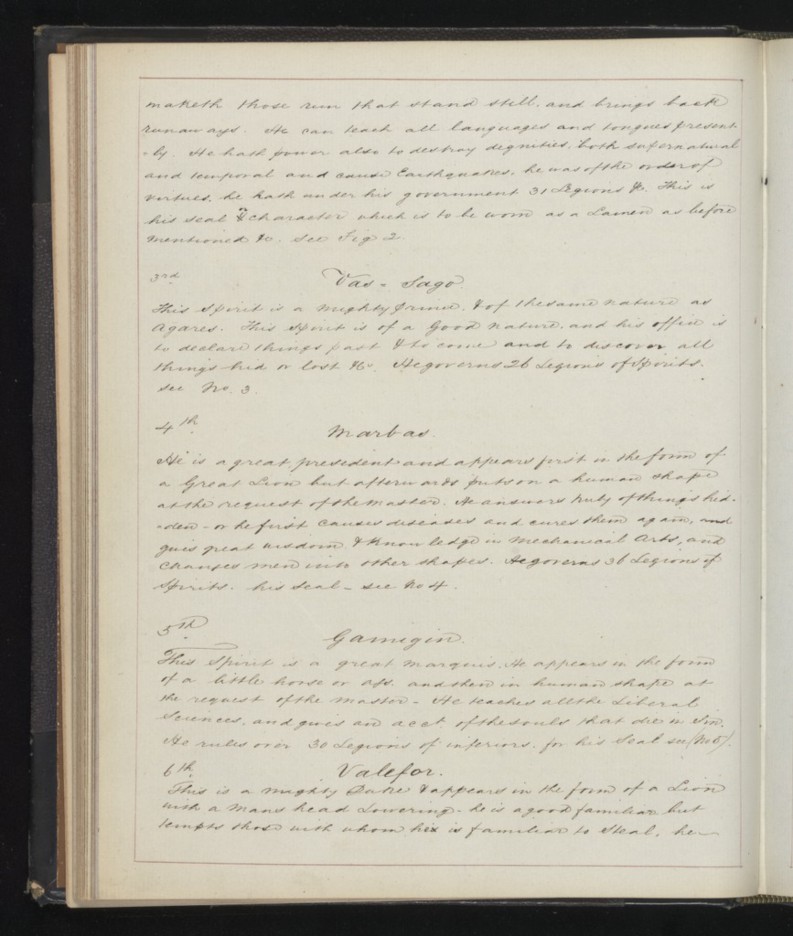 maketh those run that stand still, and brings back
runaways. He can teach all languages and tongues present-
-ly. He hath power also to destroy dignities, both supernatural
and temporal and cause Earthquakes, he was of the order of
virtues, he hath under his government 31 Legions &c. This is
his seal & character which is to be worn as a Lamen as before
mentioned &c. see Fig 2.
3rd
Vas-Sago
This Spirit is a mighty prince, & of the same nature as
Agares. This spirit is of a Good nature, and his office is
to declare things past & to come and to discover all
things hid or lost &c. He governs 26 Legions of Spirits.
see No. 3.
4th
Marbas.
He is a great president and appears first in the form of
a Great Lion but afterwards puts on a human shape
at the request of the master. He answers truly of things hid-
-den - or he first causes diseases and cures them again, and
gives great wisdom & Knowledge in Mechanical Arts, and
Changes men into other shapes. He governs 36 Legions of
Spirits. his seal - see No 4.
5th
Gamigin.
This Spirit is a great marquis. He appears in the form
of a little horse or ass. and then in human shape at
the request of the master - He teaches all the Liberal
Sciences, and gives an acct of the souls that die in Sin.
He rules over 30 Legions of inferiors, for his Seal see (No 5).
6th
Valefor.
This is a mighty Duke & appears in the form of a Lion
with a mans head Lowering - he is a good familiar but
tempts those with whom he is familiar to Steal, he